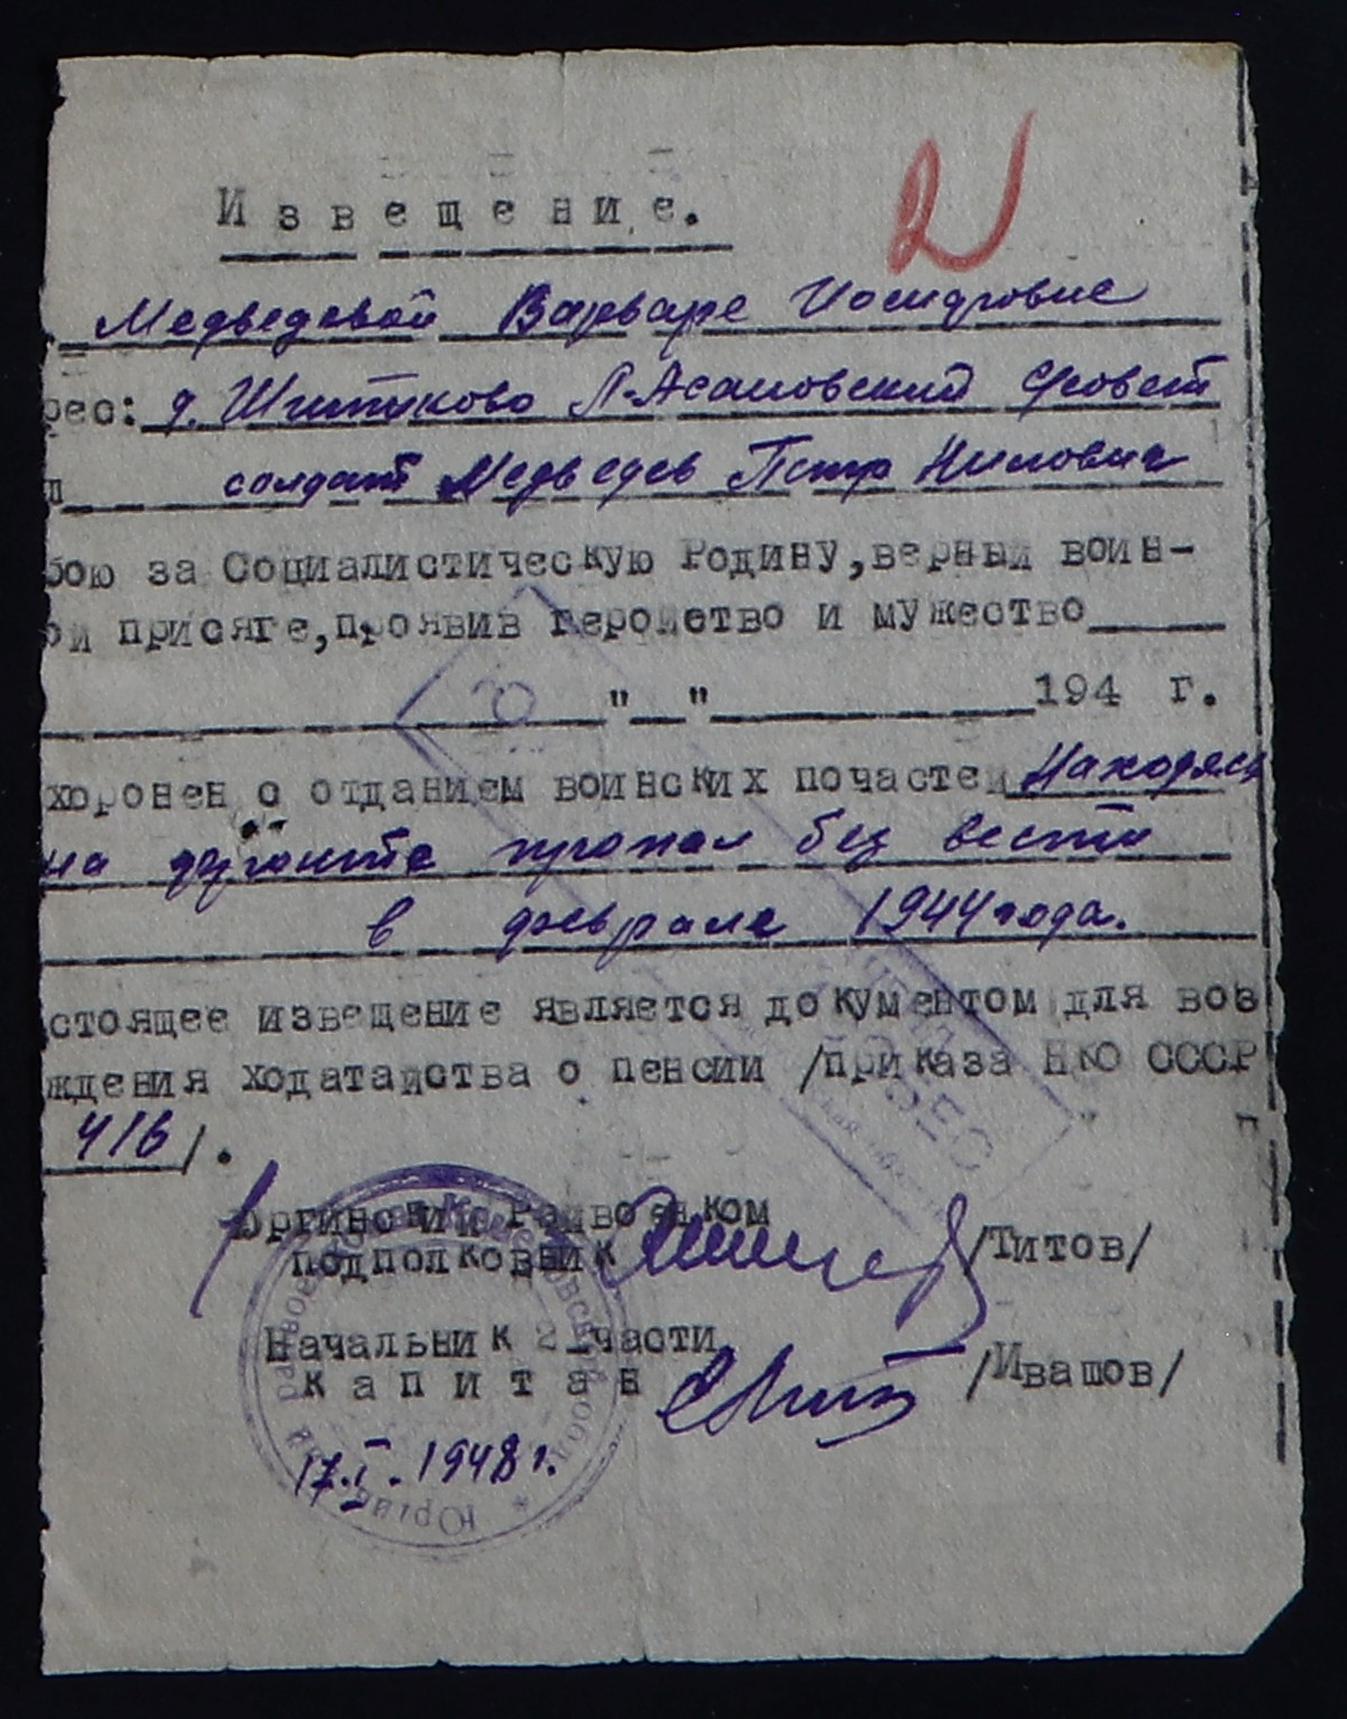 2
Извещение.
Медведевой Варваре Иосифовне
рес: д. Шитиково П-Асановский с/совет
солдат Медведев Петр Нилович
бою за Социалистическую Родину, верный воин-
ой присяге, проявив геройство и мужество
" " 194 г.
хоронен с отданием воинских почастей Находясь
на фронте пропал без вести
в феврале 1944 года.
стоящее извещение является документом для воз
ждения ходатайства о пенсии /приказа НКО СССР
416/.
Юргинский Райвоенком
подполковник /Титов/
Начальник 2 части
капитан /Ивашов/
17.I.1948 г.